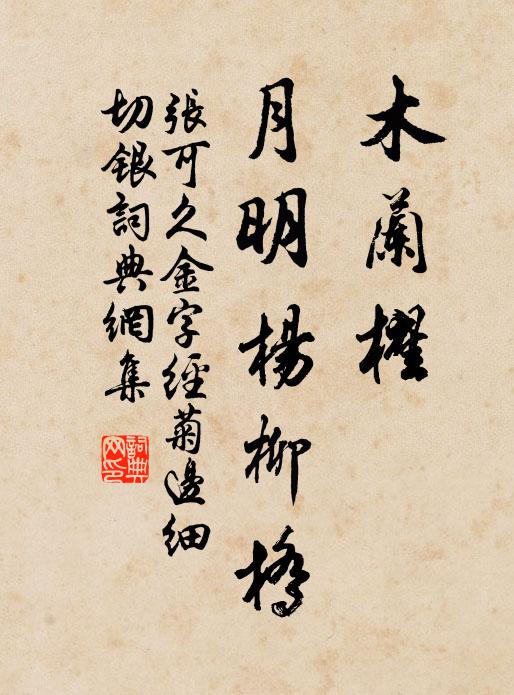 木蘭櫂
月明楊柳橋
張可久金字經菊邊細
切銀詞典網集
詞典网印